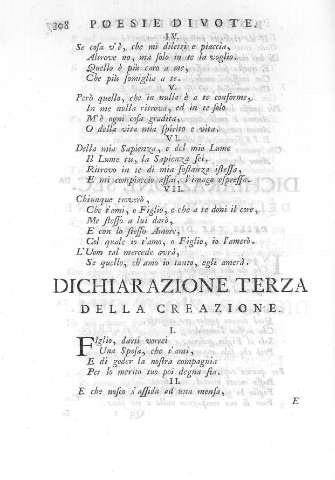 308 POESIE DIVOTE.
IV.
Se cosa v'è, che mi diletti e piaccia,
Altrove no, ma solo in te la voglio.
Quello è più caro a me,
Che più somiglia a te.
V.
Però quello, che in nulla è a te conforme,
In me nulla ritrova, ed in te solo
M'è ogni cosa gradita,
O della vita mia spirito e vita.
VI.
Della mia Sapienza, e del mio Lume
Il Lume tu, la Sapienza sei,
Ritrovo in te di mia sostanza istessa,
E mi compiaccio assai, l'imago espressa.
VII.
Chiunque troverà,
Che t'ami, o Figlio, e che a te doni il core,
Me stesso a lui darò,
E con lo stesso Amore,
Col quale io t'amo, o Figlio, io l'amerò.
L'Uom tal mercede avrà,
Se quello, ch'amo io tanto, egli amerà.
DICHIARAZIONE TERZA
DELLA CREAZIONE.
I.
FIglio, darti vorrei
Una Sposa, che t'ami,
E di goder la nostra compagnia
Per lo merito tuo poi degna sia.
II.
E che nosco s'assida ad una mensa,
E